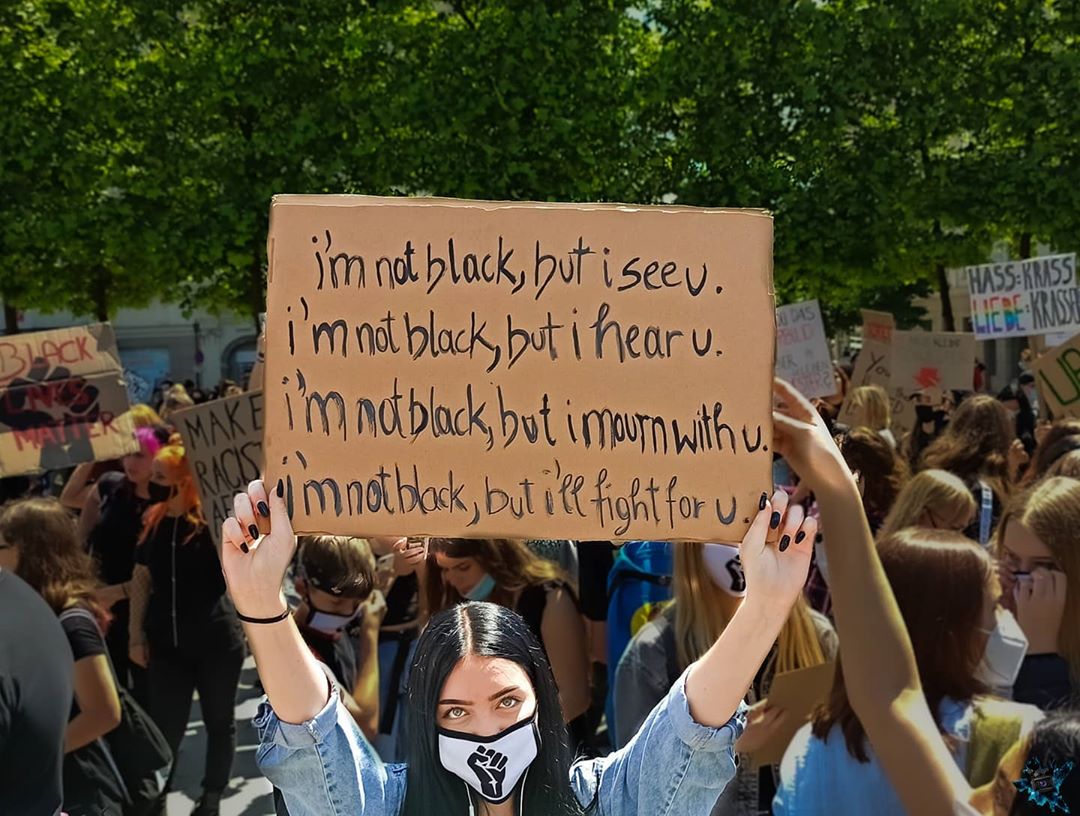 i'm not black, but i see u.
i'm not black, but i hear u.
i'm not black, but i mourn with u.
i'm not black, but i'll fight for u.
BLACK
LIVES
MATTER
MAKE
RACIS
HASS=KRASS
LIEBE=KRASSE
DAS
YOU